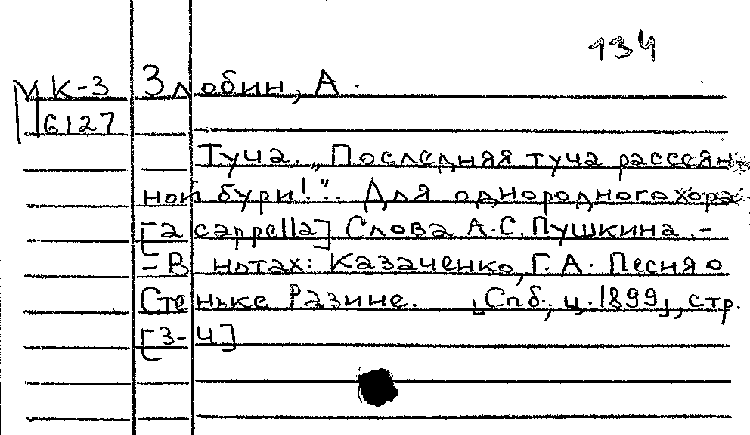 134
МК-3 Злобин, А.
6127
Туча. „Последняя туча рассеян-
ной бури!". Для однородного хора
[a cappella] Слова А.С. Пушкина. -
- В нотах: Казаченко, Г.А. Песня о
Стеньке Разине. [Спб, ц. 1899], стр.
[3-4]